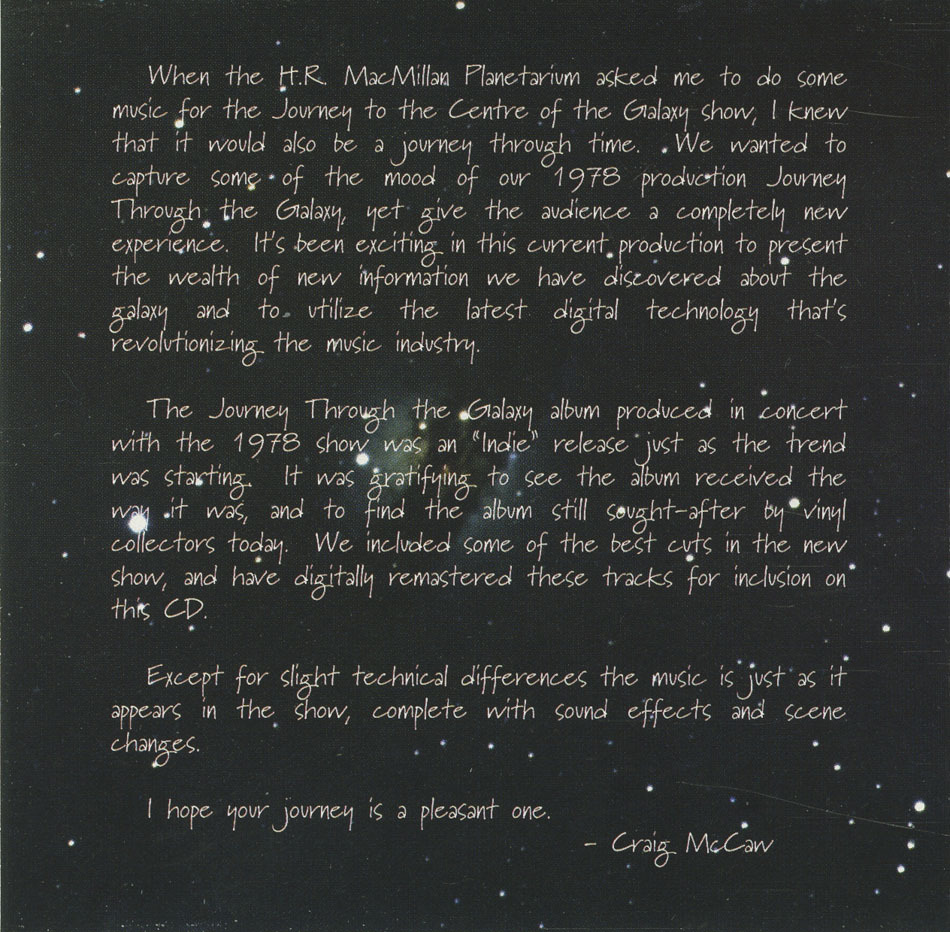 When the H.R. MacMillan Planetarium asked me to do some
music for the Journey to the Centre of the Galaxy show, I knew
that it would also be a journey through time. We wanted to
capture some of the mood of our 1978 production Journey
Through the Galaxy, yet give the audience a completely new
experience. It's been exciting in this current production to present
the wealth of new information we have discovered about the
galaxy and to utilize the latest digital technology that's
revolutionizing the music industry.
The Journey Through the Galaxy album produced in concert
with the 1978 show was an "Indie" release just as the trend
was starting. It was gratifying to see the album received the
way it was, and to find the album still sought-after by vinyl
collectors today. We included some of the best cuts in the new
show, and have digitally remastered these tracks for inclusion on
this CD.
Except for slight technical differences the music is just as it
appears in the show, complete with sound effects and scene
changes.
I hope your journey is a pleasant one.
- Craig McCaw